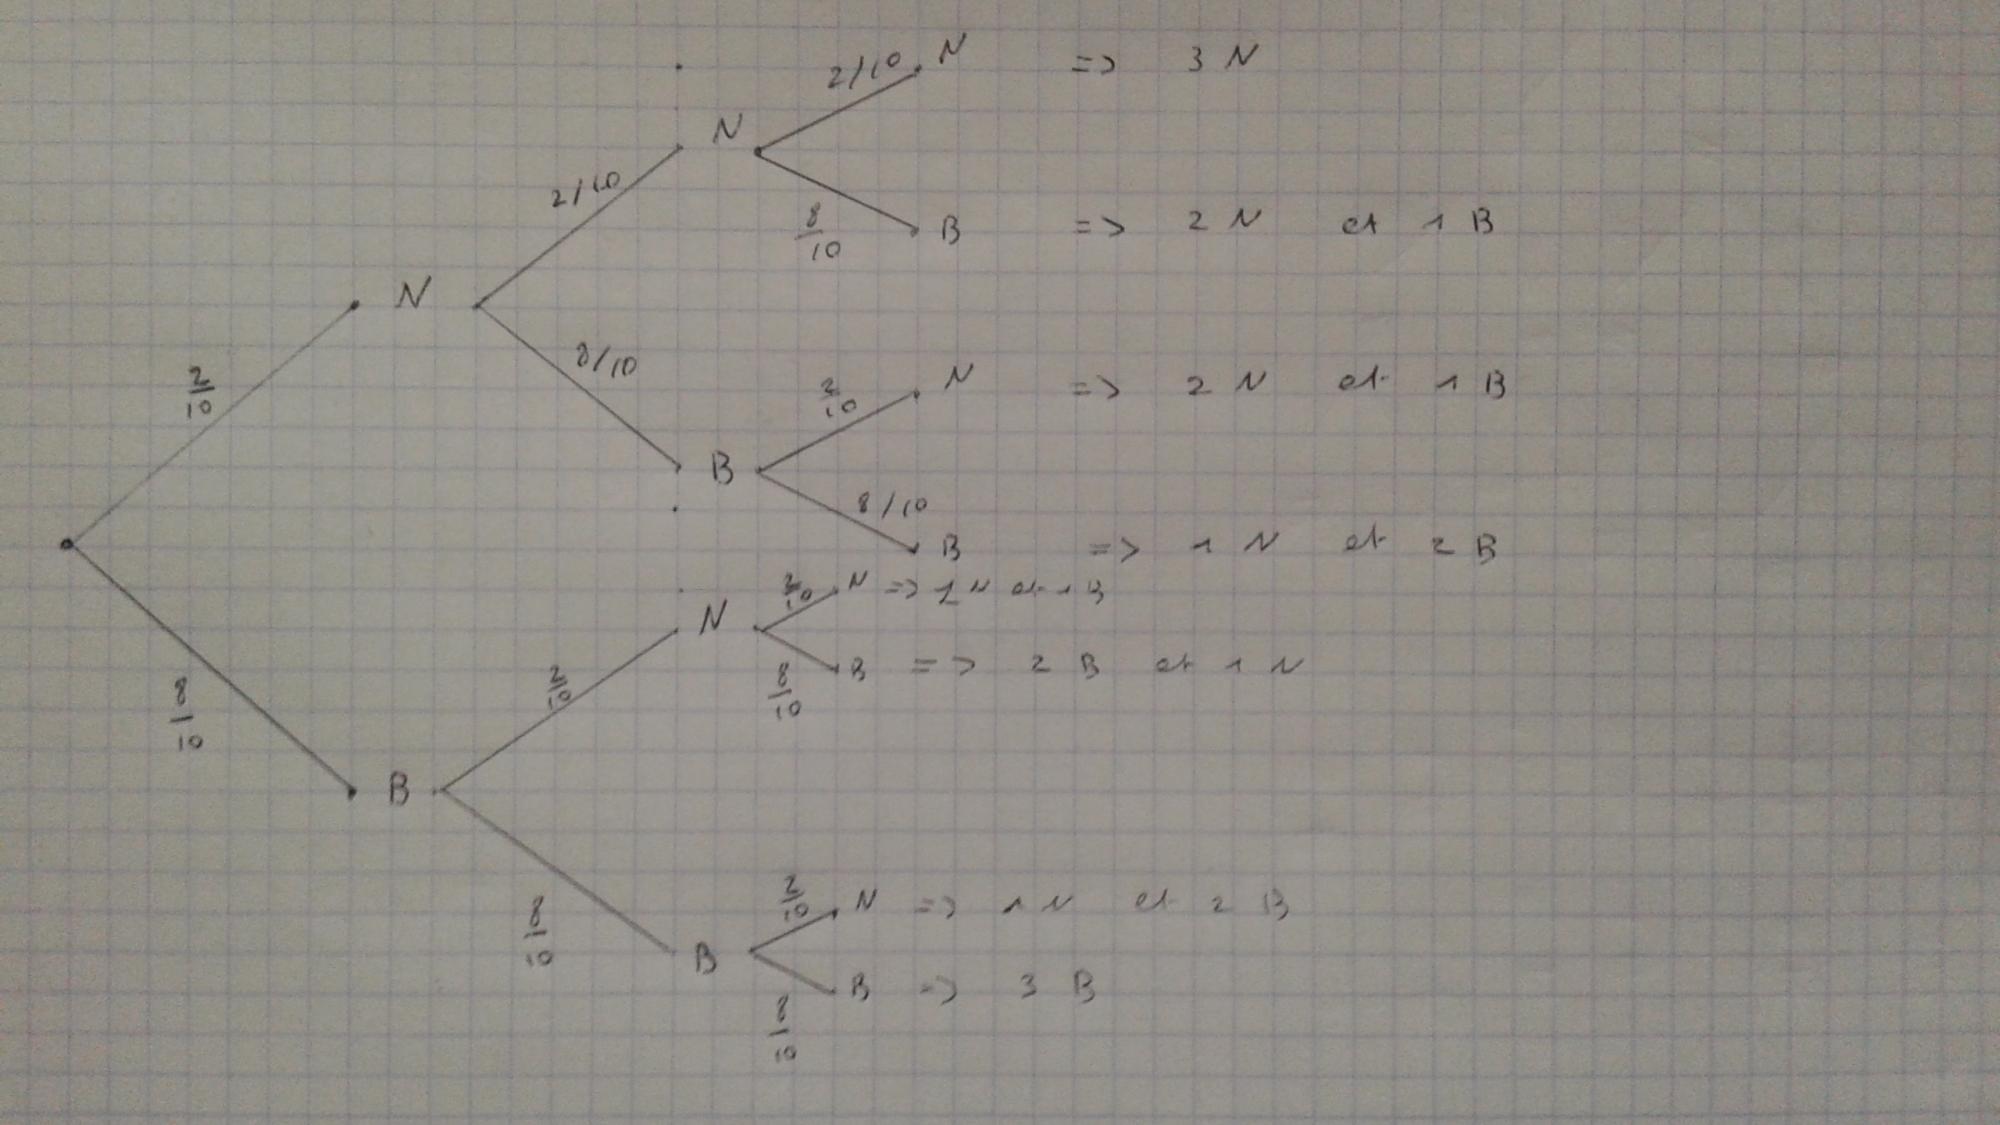 2/10 N => 3 N
N
2/10
8/10 B => 2 N et 1 B
N
2/10
8/10
2/10 N => 2 N et 1 B
B
8/10
B => 1 N et 2 B
2/10 N => 2 N et 1 B
N
2/10
8/10 B => 2 B et 1 N
8/10
B
8/10
2/10 N => 1 N et 2 B
B
8/10 B => 3 B